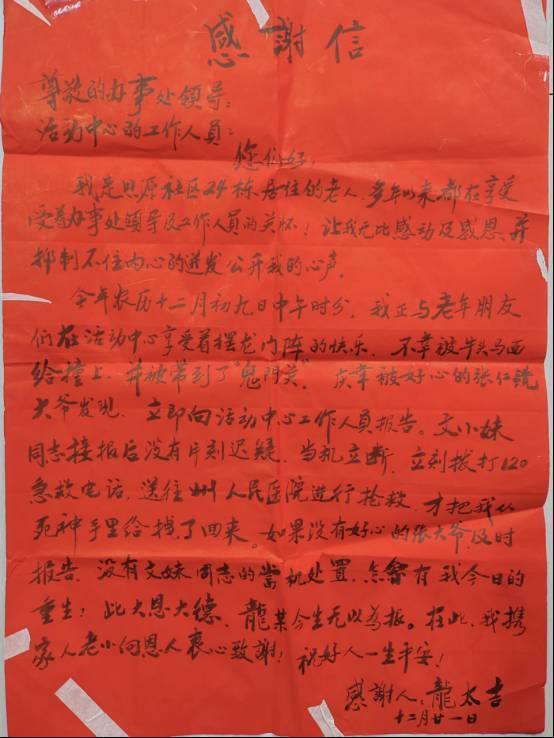 感謝信
尊敬的办事处领导:
活动中心的工作人員:
您们好,
我是贝源社区24栋居住的老人,多年以来都在享受
受着办事处领导及工作人員的关怀!让我无比感动及感恩,并
抑制不住内心的迸发公开我的心声。
今年农历十二月初九日中午时分,我正与老年朋友
们在活动中心享受着摆龙门阵的快乐,不幸被牛头马面
给撞上,并被带到了“鬼門关”,庆幸被好心的张仁
大爷发现,立即向活动中心工作人員报告。文小妹
同志接报后没有片刻迟疑,当机立断,立刻拨打120
急救电话,送往州人民医院进行抢救,才把我从
死神手里给拽了回来。如果没有好心的张大爷及时
报告,没有文妹同志的當机处置,怎會有我今日的
重生!此大恩大德,龍某今生无以為报。在此,我携
家人老小向恩人衷心致謝!祝好人一生平安!
感謝人:龍太吉
十二月廿一日